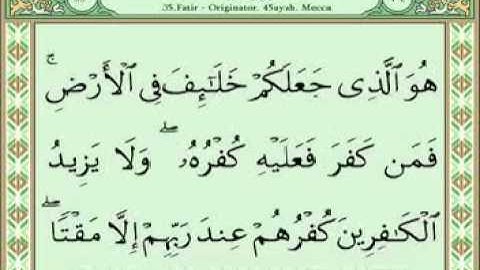 35.Fatir - Originator. 45ayah. Mecca
هُوَ ٱلَّذِى جَعَلَكُمْ خَلَـٰٓئِفَ فِى ٱلْأَرْضِ ۚ
فَمَن كَفَرَ فَعَلَيْهِ كُفْرُهُۥ ۖ وَلَا يَزِيدُ
ٱلْكَـٰفِرِينَ كُفْرُهُمْ عِندَ رَبِّهِمْ إِلَّا مَقْتًا ۖ